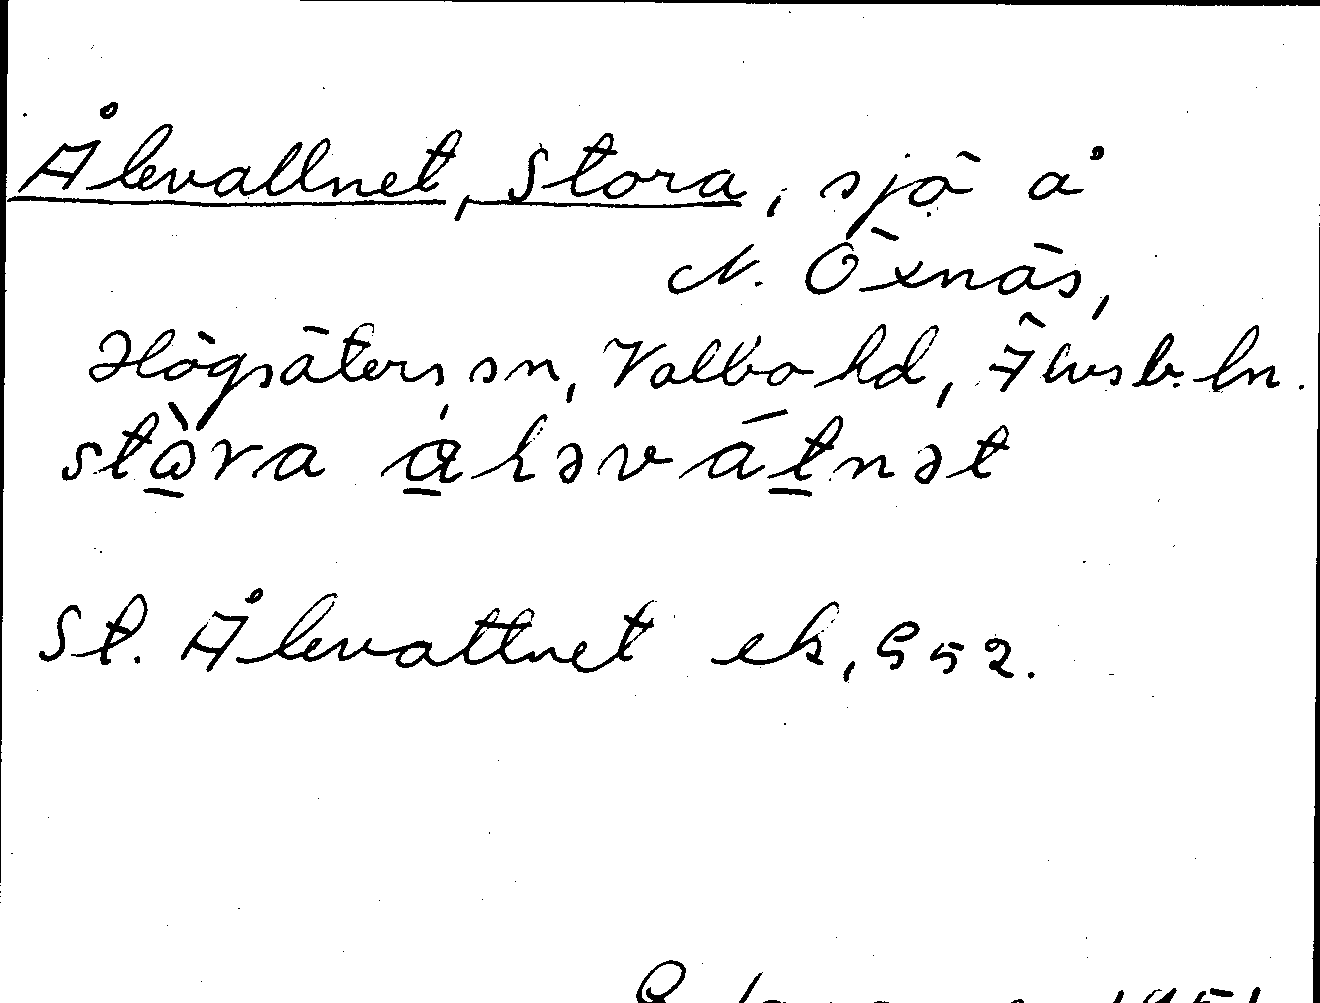 Ålevattnet, Stora, sjö å
N. Öxnäs,
Högsäters sn, Valbo hd, Älvsb. ln.
stὼ̱ra a̱lɘváṯnət
St. Ålevattnet ek, 552.
1951